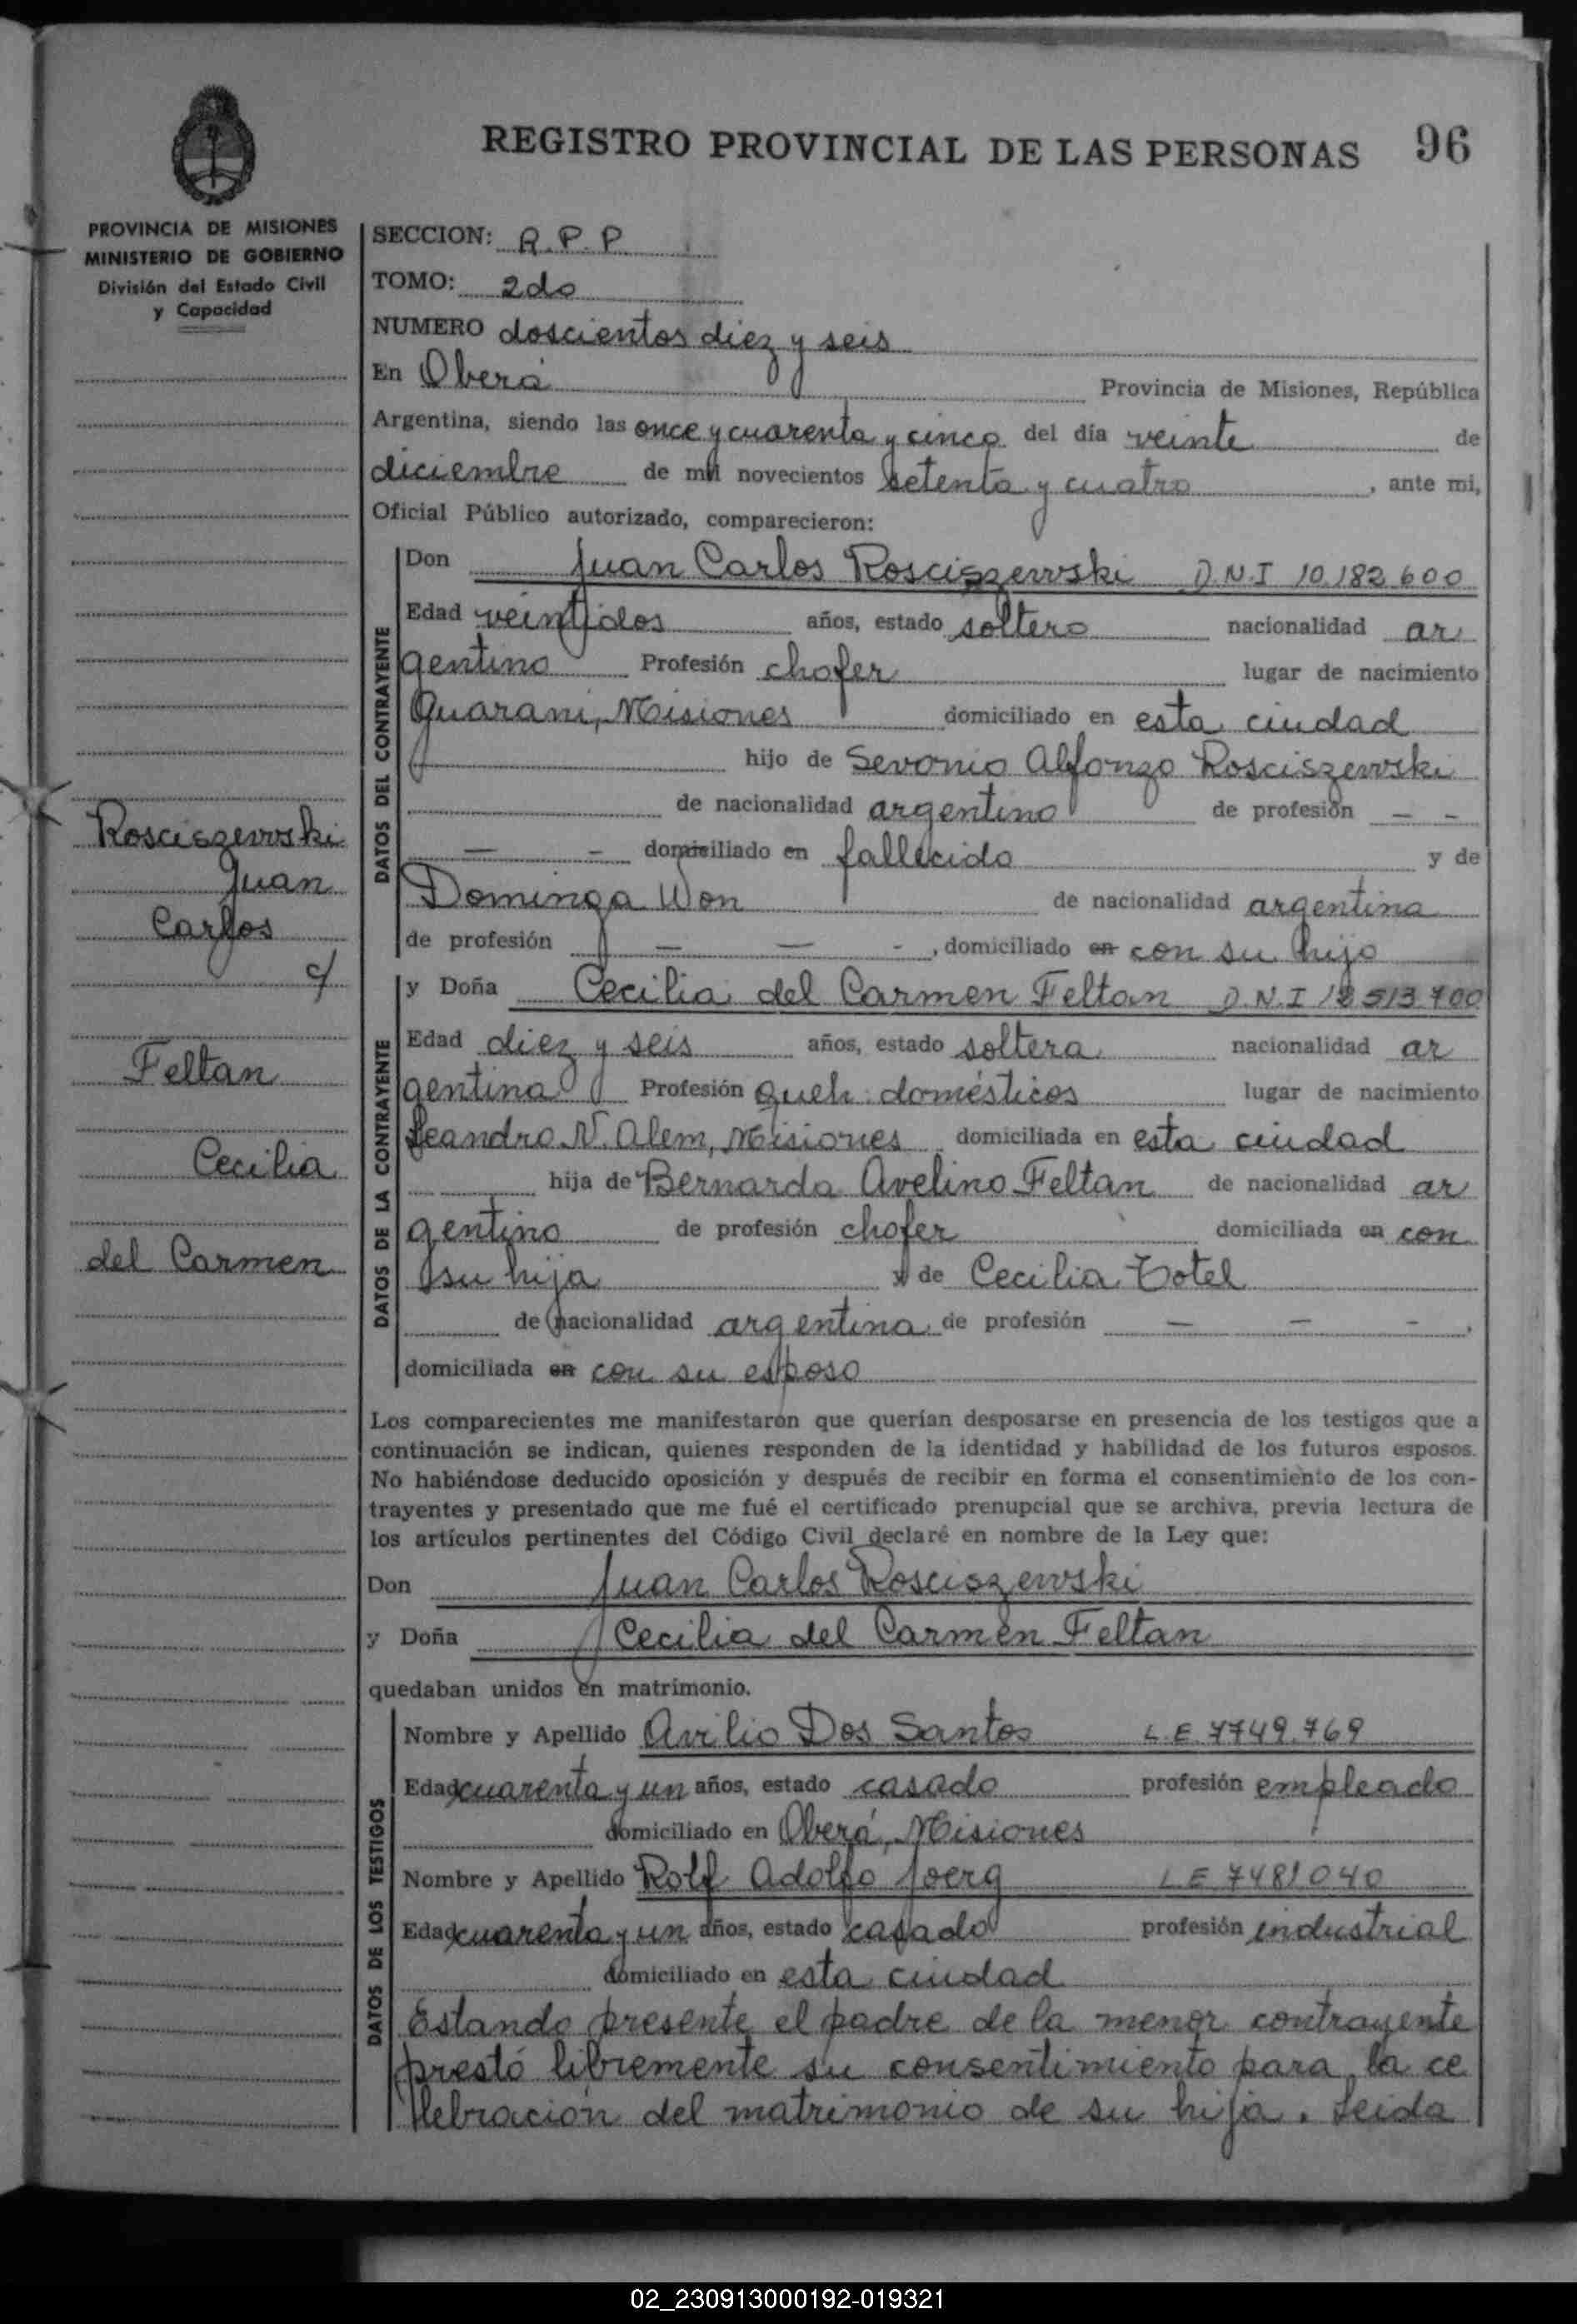 REGISTRO PROVINCIAL DE LAS PERSONAS 96
PROVINCIA DE MISIONES
MINISTERIO DE GOBIERNO
División del Estado Civil
y Capacidad
SECCION: R.P.P
TOMO: 2do
NUMERO doscientos diez y seis
En Oberá Provincia de Misiones, República
Argentina, siendo las once y cuarenta y cinco del día veinte de
diciembre de mil novecientos setenta y cuatro, ante mi,
Oficial Público autorizado, comparecieron:
DATOS DEL CONTRAYENTE
Don Juan Carlos Rosciszewski D.N.I 10.182.600
Edad veintidos años, estado soltero nacionalidad ar
gentino Profesión chofer lugar de nacimiento
Guarani, Misiones domiciliado en esta ciudad
hijo de Sevonio Alfonzo Rosciszewski
de nacionalidad argentino de profesión — -
— - domiciliado en fallecido y de
Dominga Won de nacionalidad argentina
de profesión — — - , domiciliado en con su hijo
Rosciszewski
Juan
Carlos
c/
Feltan
Cecilia
del Carmen
DATOS DE LA CONTRAYENTE
y Doña Cecilia del Carmen Feltan D.N.I 12 513.700
Edad diez y seis años, estado soltera nacionalidad ar
gentina Profesión queh. domésticos lugar de nacimiento
Leandro N. Alem, Misiones domiciliada en esta ciudad
hija de Bernardo Avelino Feltan de nacionalidad ar
gentino de profesión chofer domiciliada en con
su hija y de Cecilia Totel
de nacionalidad argentina de profesión — — - ,
domiciliada en con su esposo
Los comparecientes me manifestaron que querían desposarse en presencia de los testigos que a
continuación se indican, quienes responden de la identidad y habilidad de los futuros esposos.
No habiéndose deducido oposición y después de recibir en forma el consentimiento de los con-
trayentes y presentado que me fué el certificado prenupcial que se archiva, previa lectura de
los artículos pertinentes del Código Civil declaré en nombre de la Ley que:
Don Juan Carlos Rosciszewski
y Doña Cecilia del Carmen Feltan
quedaban unidos en matrimonio.
DATOS DE LOS TESTIGOS
Nombre y Apellido Avilio Dos Santos L.E. 7749.769
Edad cuarenta y un años, estado casado profesión empleado
domiciliado en Oberá, Misiones
Nombre y Apellido Rolf Adolfo Joerg L.E. 7481040
Edad cuarenta y un años, estado casado profesión industrial
domiciliado en esta ciudad
Estando presente el padre de la menor contrayente
prestó libremente su consentimiento para la ce
lebración del matrimonio de su hija. Leida
02_230913000192-019321